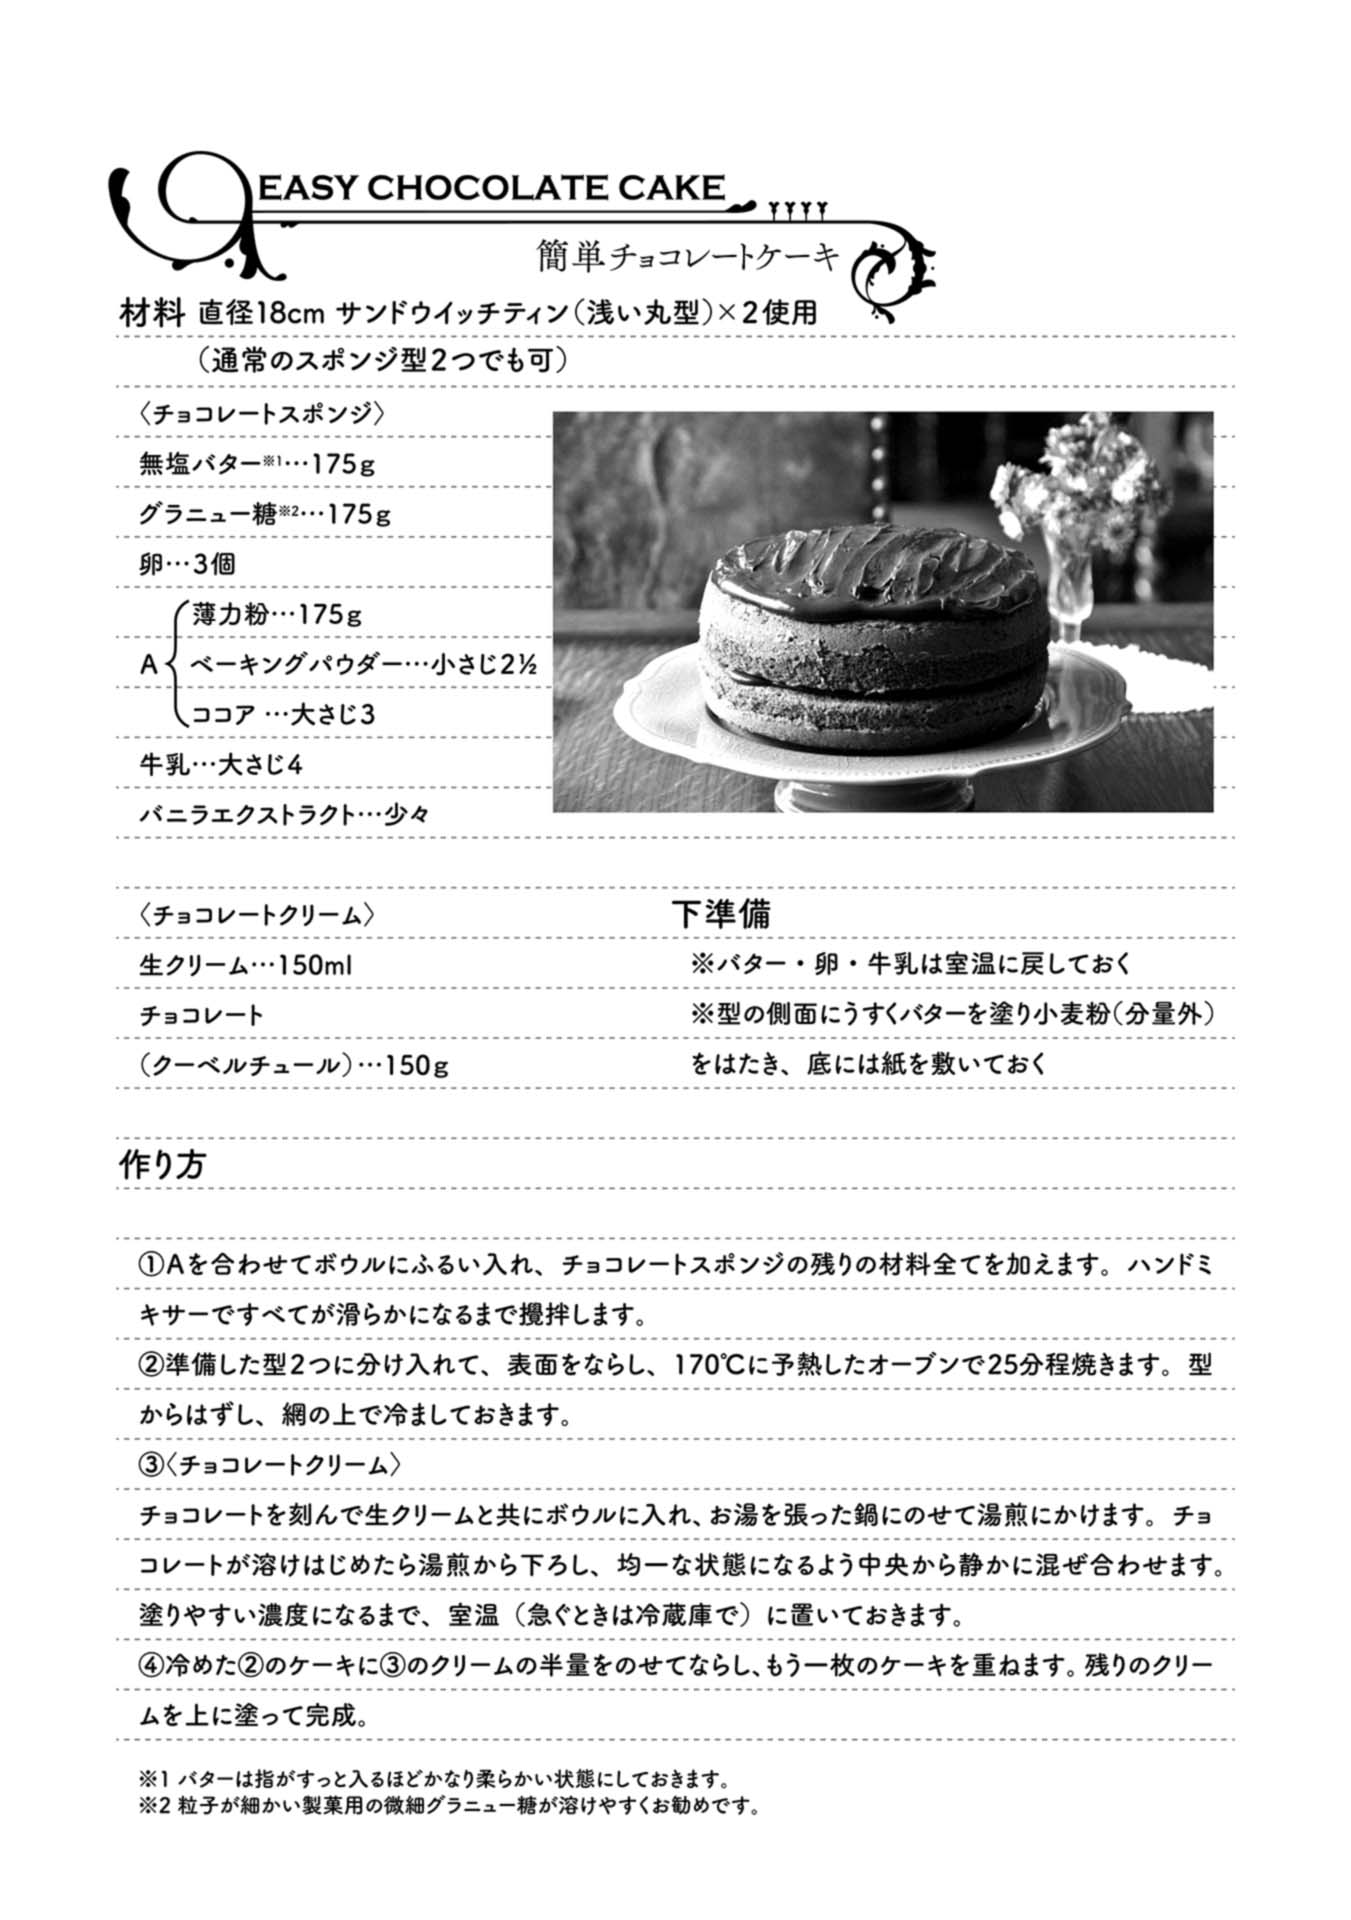 EASY CHOCOLATE CAKE
簡単チョコレートケーキ
材料 直径18cm サンドウイッチティン（浅い丸型）×2使用
（通常のスポンジ型2つでも可）
〈チョコレートスポンジ〉
無塩バター※1…175g
グラニュー糖※2…175g
卵…3個
薄力粉…175g
A ベーキングパウダー…小さじ2½
ココア …大さじ3
牛乳…大さじ4
バニラエクストラクト…少々
〈チョコレートクリーム〉
生クリーム…150ml
チョコレート
（クーベルチュール）…150g
下準備
※バター・卵・牛乳は室温に戻しておく
※型の側面にうすくバターを塗り小麦粉（分量外）
をはたき、底には紙を敷いておく
作り方
①Aを合わせてボウルにふるい入れ、チョコレートスポンジの残りの材料全てを加えます。ハンドミ
キサーですべてが滑らかになるまで攪拌します。
②準備した型2つに分け入れて、表面をならし、170℃に予熱したオーブンで25分程焼きます。型
からはずし、網の上で冷ましておきます。
③〈チョコレートクリーム〉
チョコレートを刻んで生クリームと共にボウルに入れ、お湯を張った鍋にのせて湯煎にかけます。チョ
コレートが溶けはじめたら湯煎から下ろし、均一な状態になるよう中央から静かに混ぜ合わせます。
塗りやすい濃度になるまで、室温（急ぐときは冷蔵庫で）に置いておきます。
④冷めた②のケーキに③のクリームの半量をのせてならし、もう一枚のケーキを重ねます。残りのクリー
ムを上に塗って完成。
※1 バターは指がすっと入るほどかなり柔らかい状態にしておきます。
※2 粒子が細かい製菓用の微細グラニュー糖が溶けやすくお勧めです。